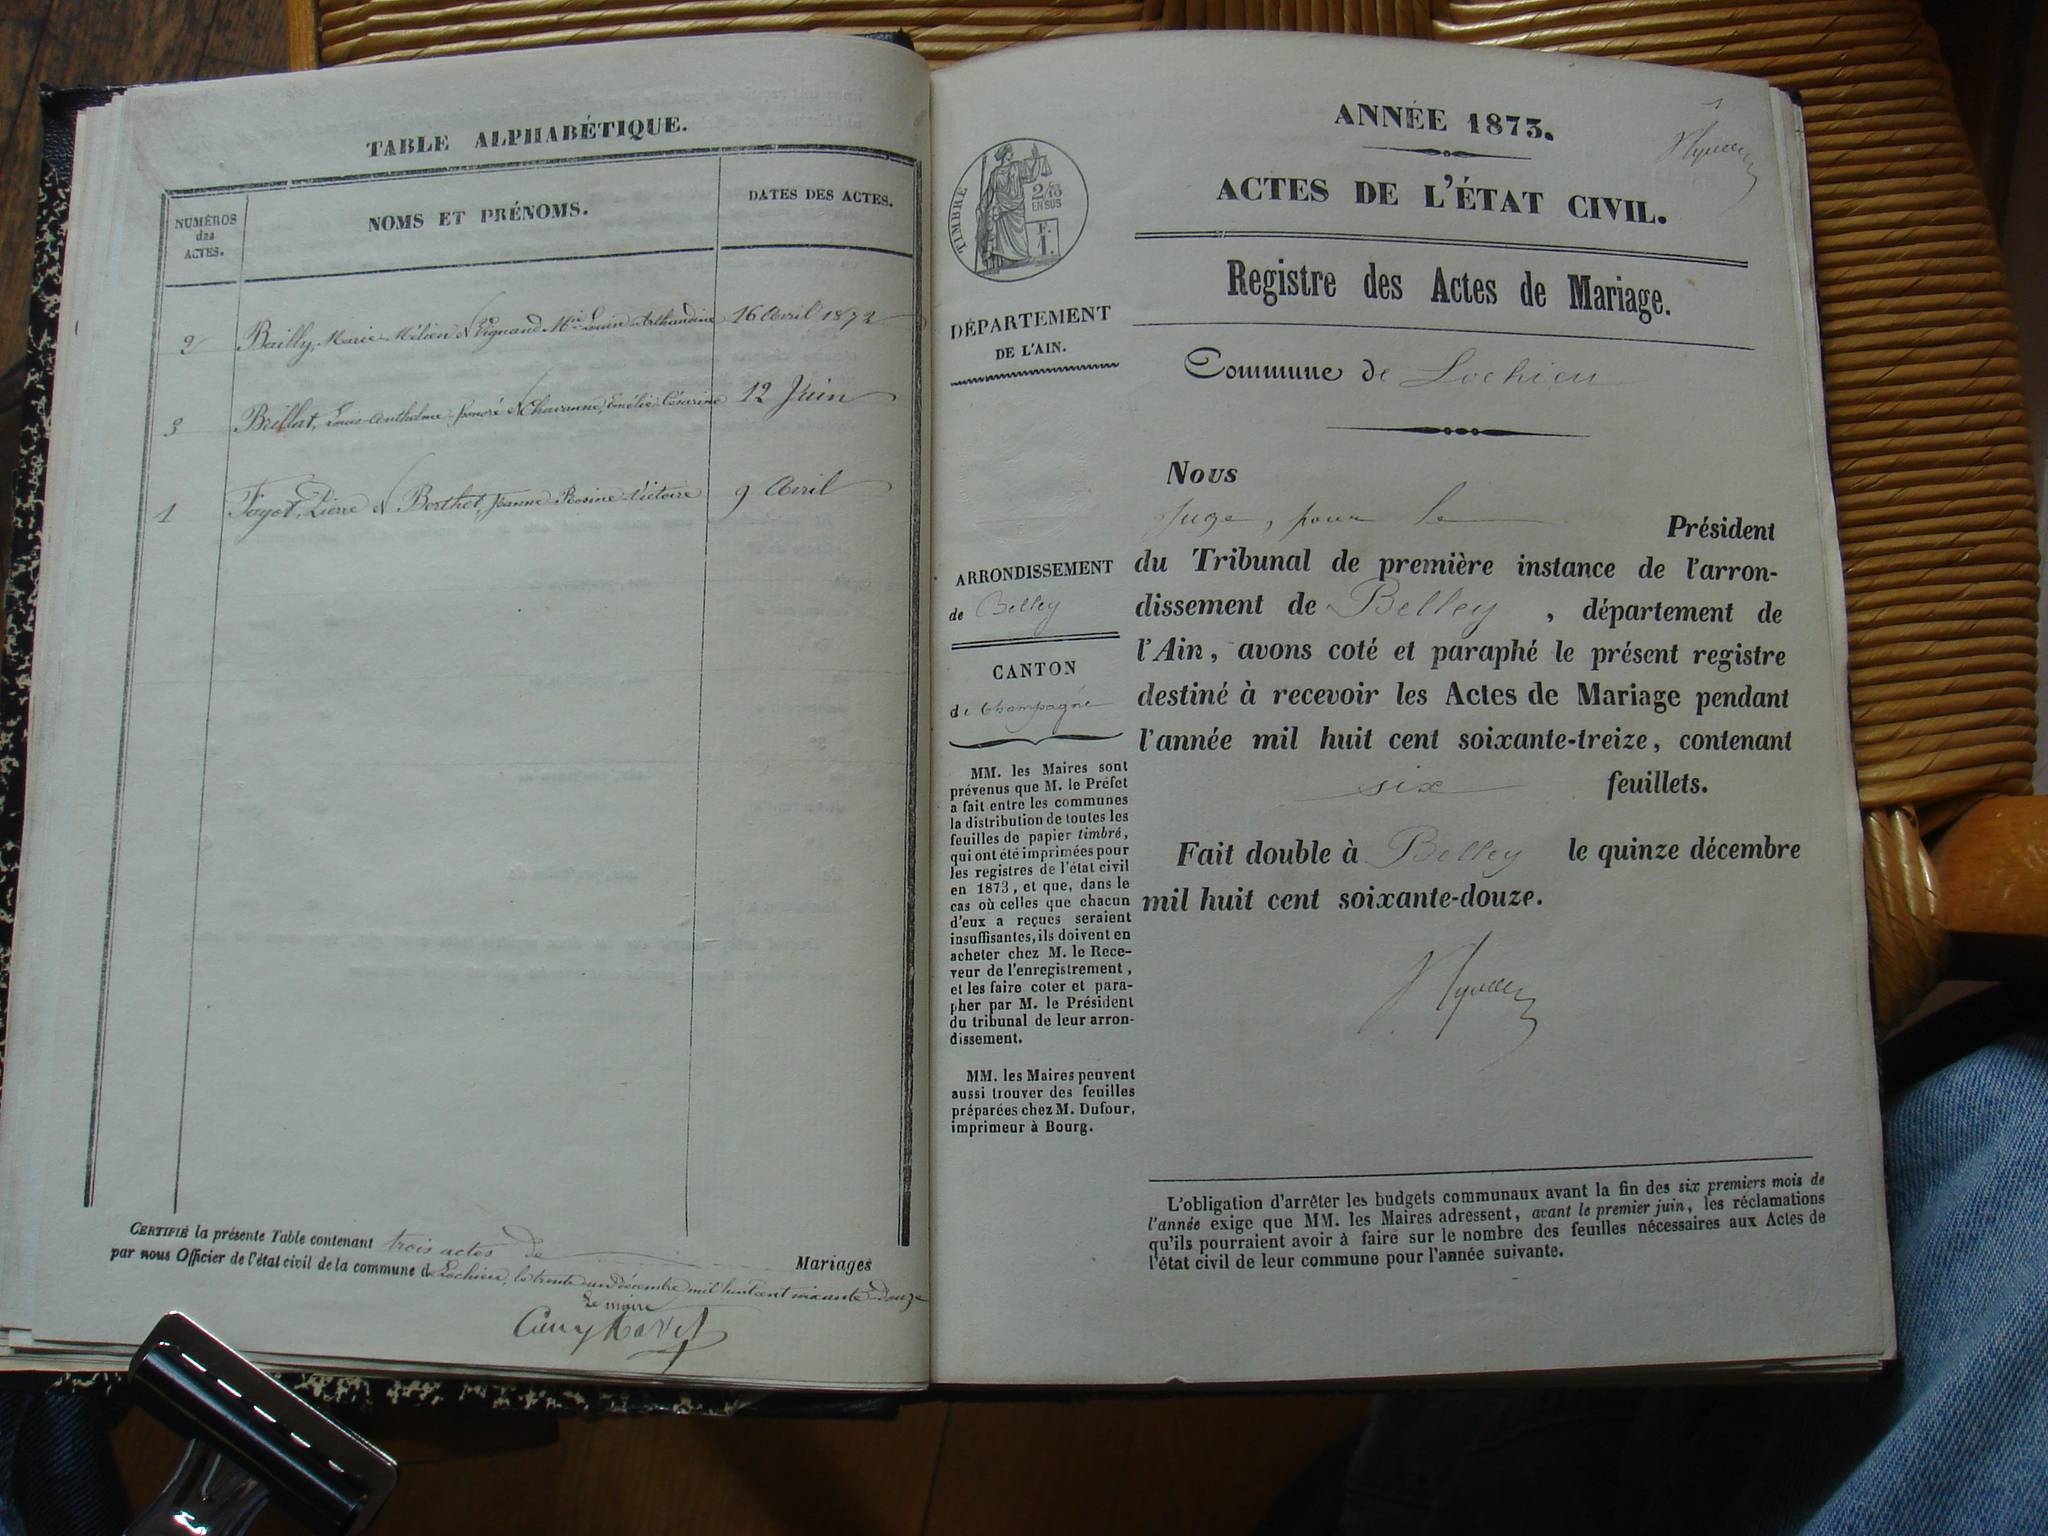 TABLE ALPHABÉTIQUE.
NUMÉROS
des
ACTES.
NOMS ET PRÉNOMS.
DATES DES ACTES.
2 Bailly, Marie Mélien & Vignand Mie Louise Arthaudine 16 Avril 1872
3 Brillat, Louis Anthelme Honoré & Chavanne, Emélie Césarine 12 Juin
1 Fayot, Pierre & Berthet, Jeanne Rosine Victoire 9 Avril
CERTIFIÉ la présente Table contenant trois actes de Mariages
par nous Officier de l'état civil de la commune de Lochieu, le trente un Décembre mil huit cent soixante Douze
Le maire
ANNÉE 1873.
ACTES DE L'ÉTAT CIVIL.
TIMBRE
2/10
EN SUS
F.
1.
Registre des Actes de Mariage.
DÉPARTEMENT
DE L'AIN.
Commune de Lochieu
Nous
Juge, pour le Président
du Tribunal de première instance de l'arron-
dissement de Belley, département de
l'Ain, avons coté et paraphé le présent registre
destiné à recevoir les Actes de Mariage pendant
l'année mil huit cent soixante-treize, contenant
six feuillets.
Fait double à Belley le quinze décembre
mil huit cent soixante-douze.
ARRONDISSEMENT
de Belley
CANTON
de Champagne
MM. les Maires sont
prévenus que M. le Préfet
a fait entre les communes
la distribution de toutes les
feuilles de papier timbré,
qui ont été imprimées pour
les registres de l'état civil
en 1873, et que, dans le
cas où celles que chacun
d'eux a reçues seraient
insuffisantes, ils doivent en
acheter chez M. le Rece-
veur de l'enregistrement,
et les faire coter et para-
pher par M. le Président
du tribunal de leur arron-
dissement.
MM. les Maires peuvent
aussi trouver des feuilles
préparées chez M. Dufour,
imprimeur à Bourg.
L'obligation d'arrêter les budgets communaux avant la fin des six premiers mois de
l'année exige que MM. les Maires adressent, avant le premier juin, les réclamations
qu'ils pourraient avoir à faire sur le nombre des feuilles nécessaires aux Actes de
l'état civil de leur commune pour l'année suivante.